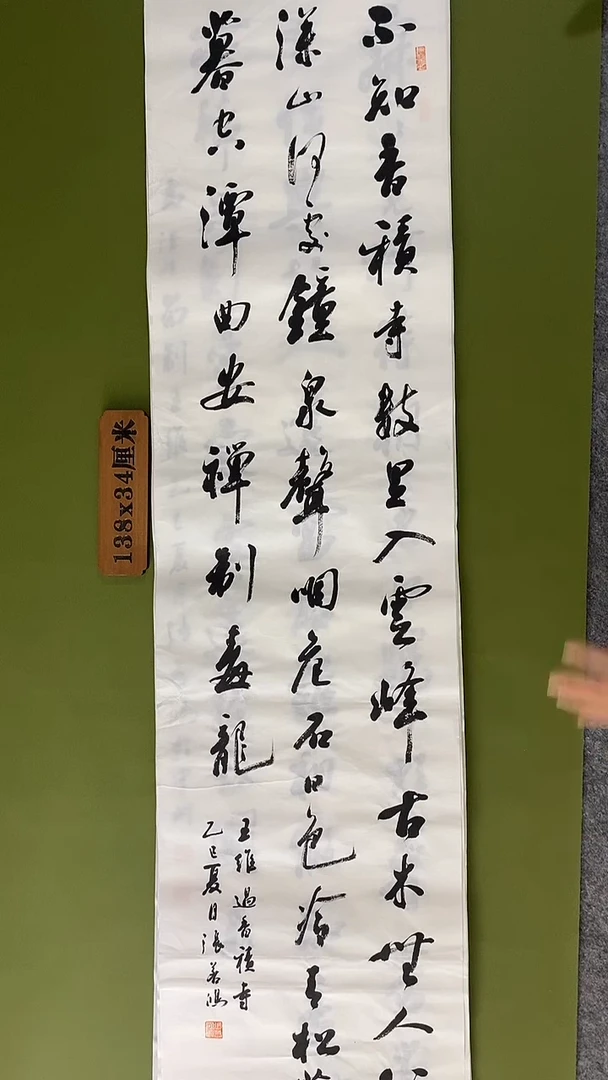 不知香積寺數里入雲峰古木無人
深山何處鐘泉聲咽危石日色冷青松
暮空潭曲安禪制毒龍
王維過香積寺
乙巳夏日張
138x34厘米